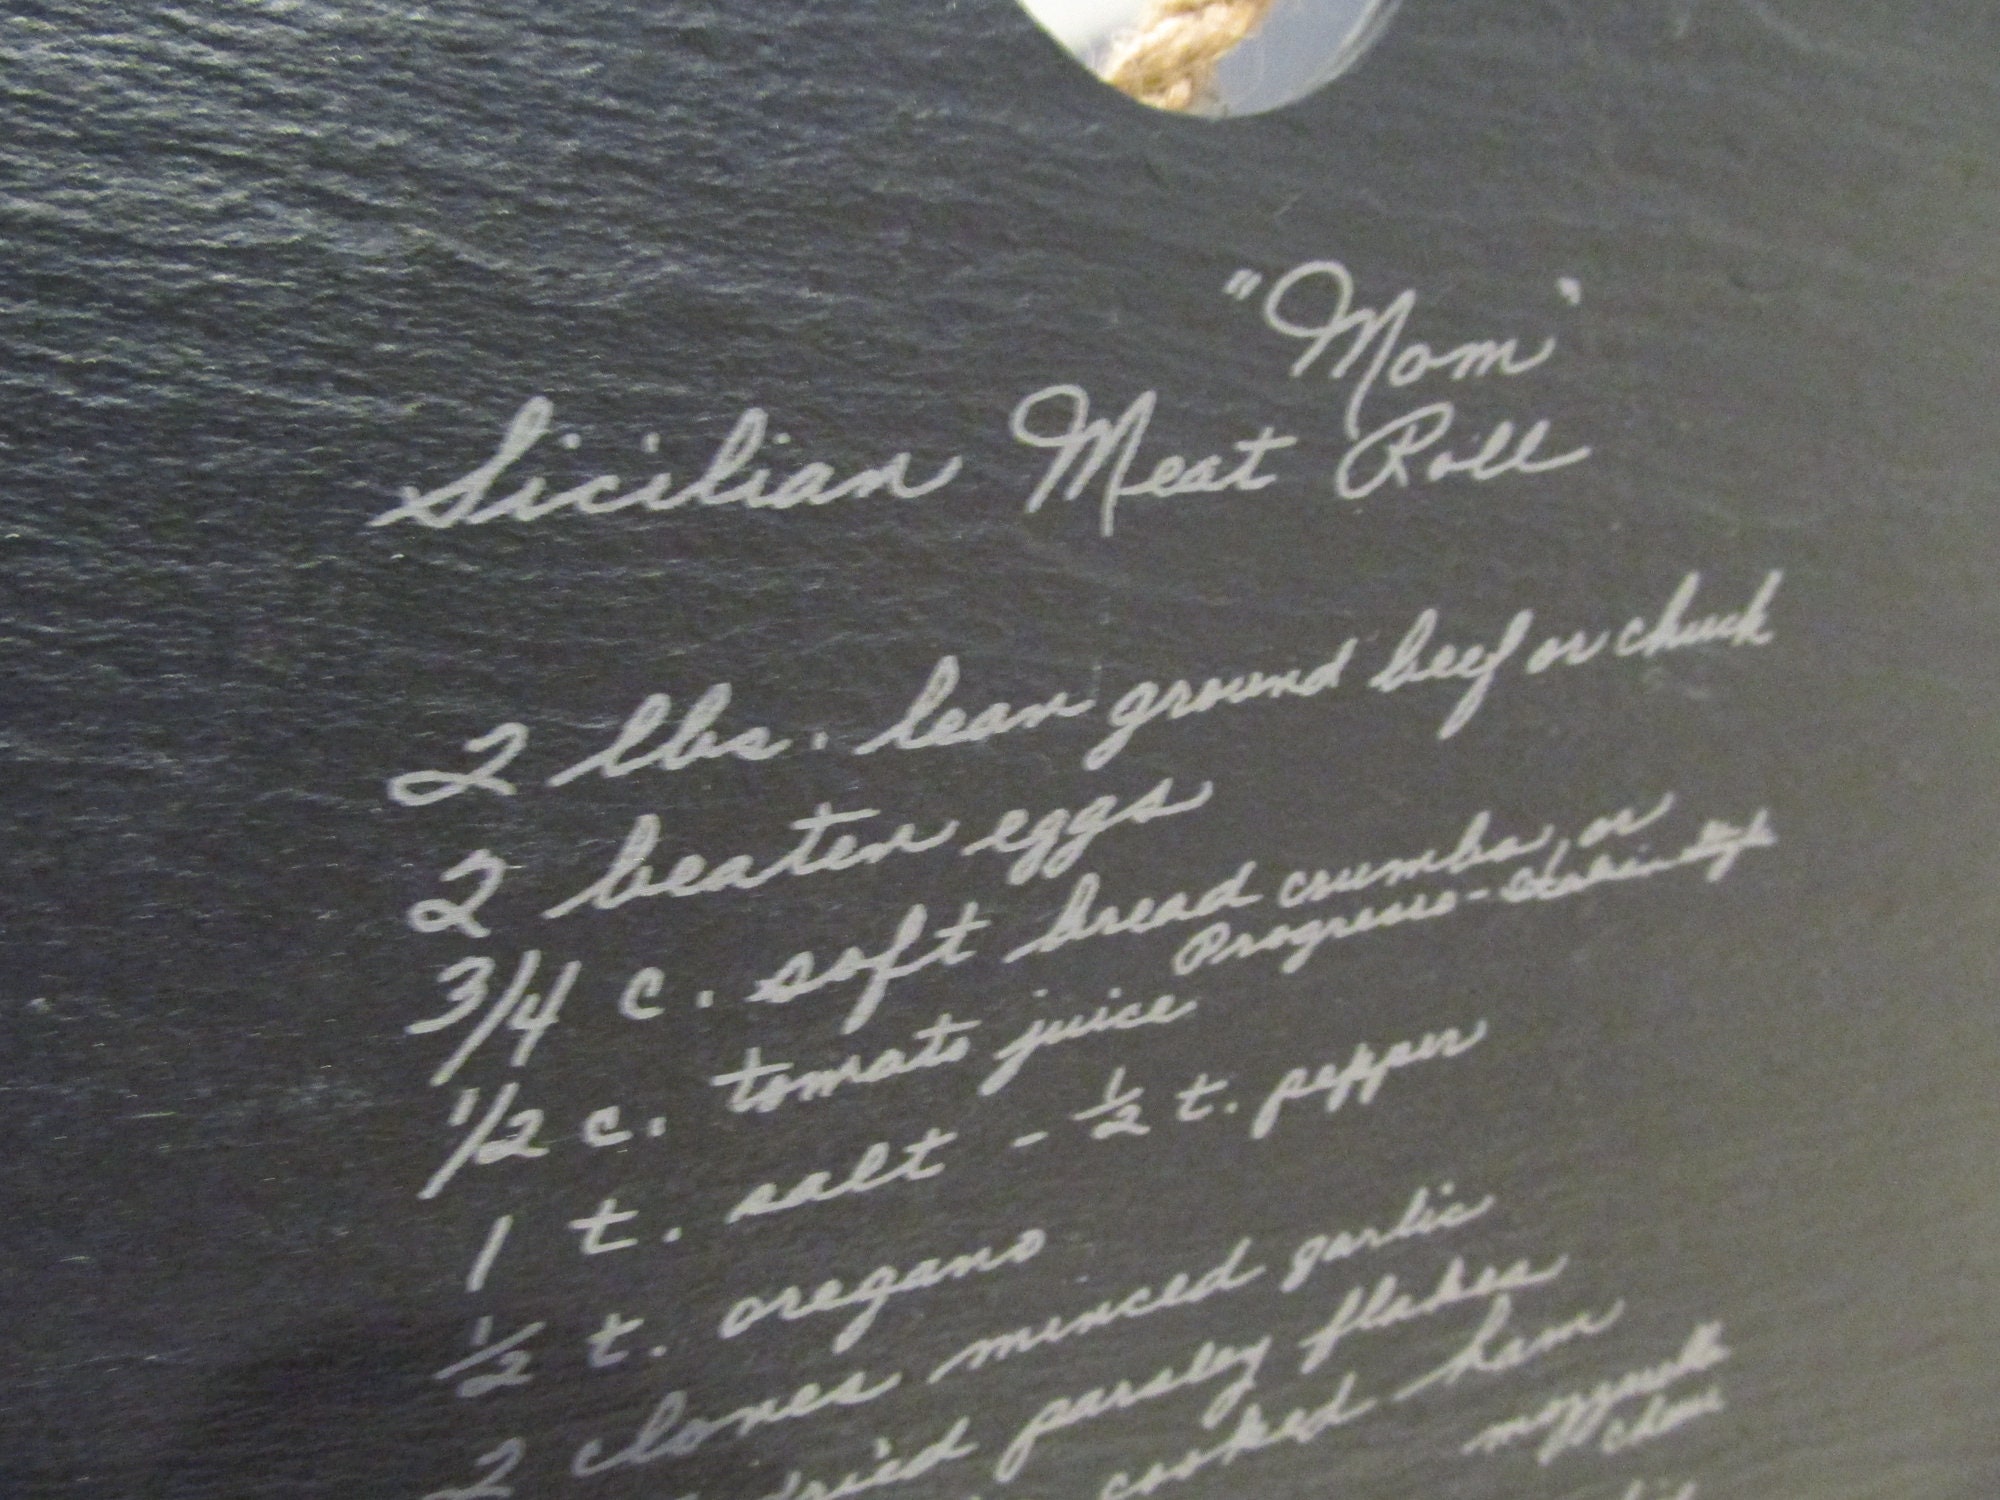 "Mom"
Sicilian Meat Roll
2 lbs. lean ground beef or chuck
2 beaten eggs
3/4 c. soft bread crumbs or
Progresso - Italian style
1/2 c. tomato juice
1 t. salt - 1/2 t. pepper
1/2 t. oregano
2 cloves minced garlic
dried parsley flakes
cooked ham
mozzarella